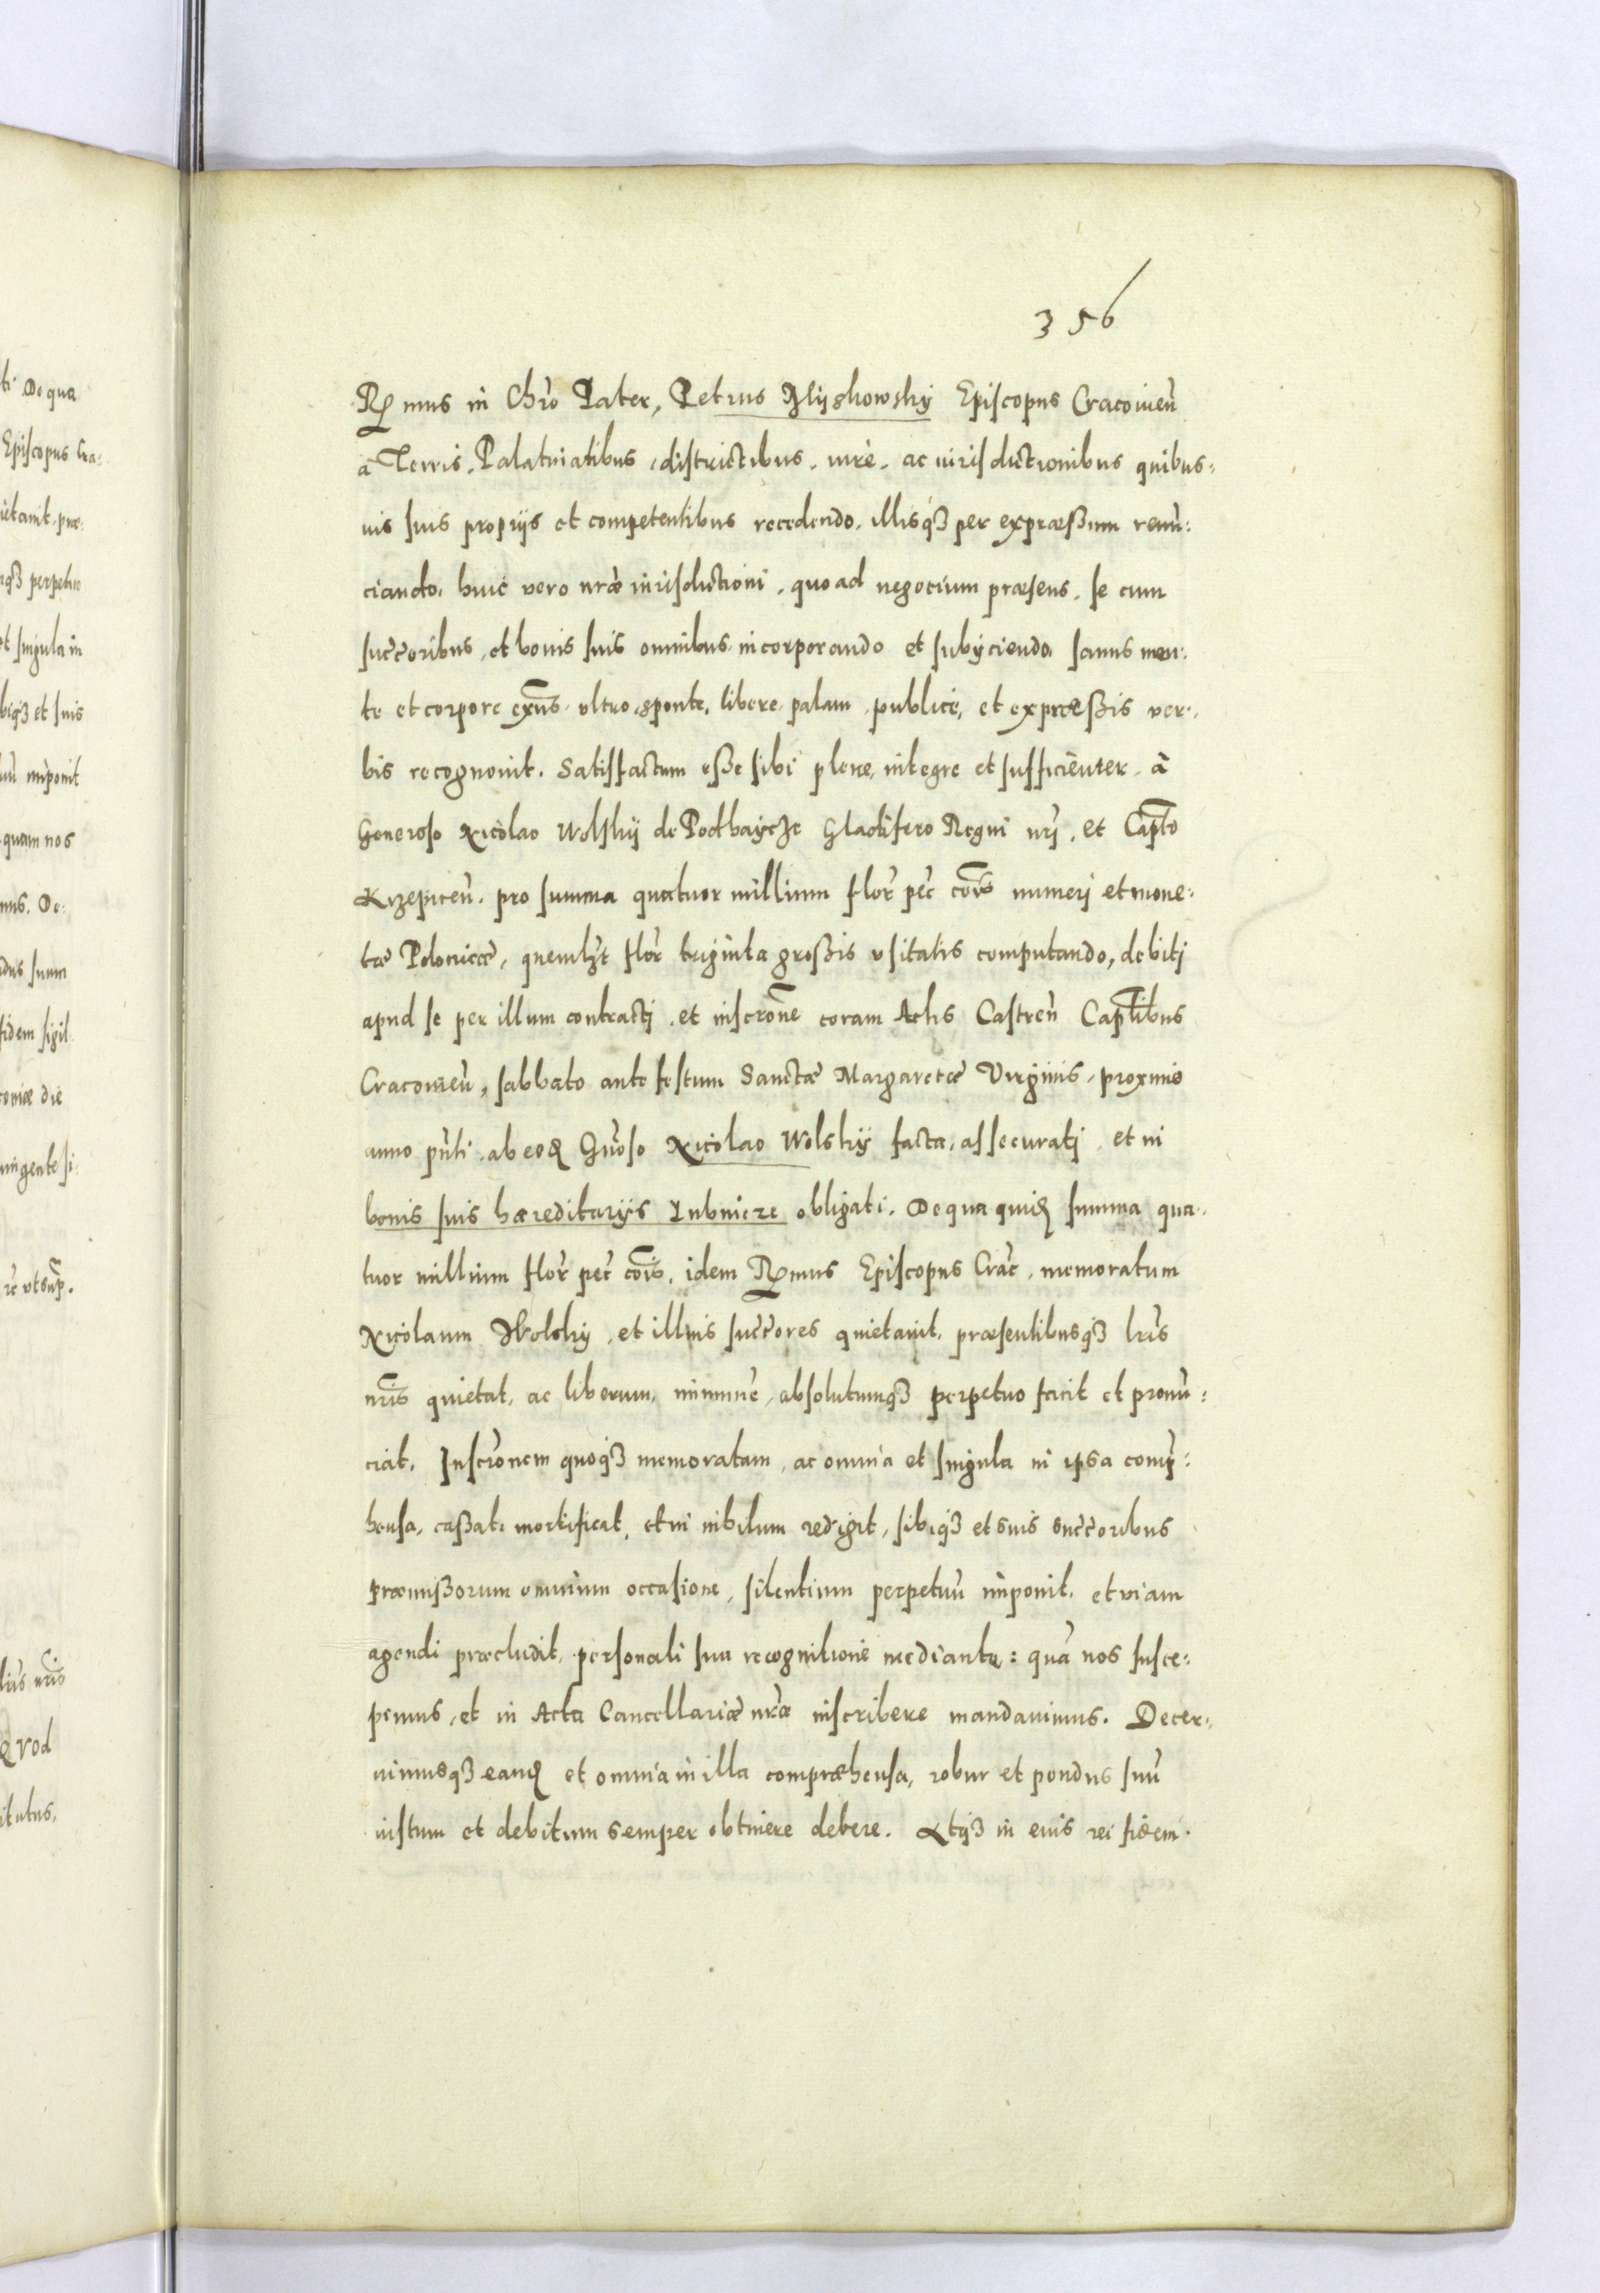 356
Rmus in Chrō Pater, Petrus Myszkowsky Episcopus Cracovieñ
a Terris, Palatinatibus, districtibus, iure, ac iurisdictionibus quibus-
uis suis proprijs et competentibus recedendo, illisq3 per expræssum renū-
ciando, huic vero nræ iurisdictioni, quo ad negotium præsens, se cum
succoribus, et bonis suis omnibus incorporando et subijciendo, sanus men-
te et corpore exñs, ultro, sponte, libere, palam, publice, et expræssis ver-
bis recognovit. Satisfactum esse sibi plene, integre et sufficienter, à
Generoso Nicolao Wolsky de Podhaycze Gladifero Regni nrj, et Capto
Krzepiceñ. pro summa quatuor millium flor pec cois numeri et mone-
tæ Polonicæ, quemlzt flor triginta grossis usitatis computando, debitj
apud se per illum contractj, et inscrone coram Actis Castreñ Captlibus
Cracovieñ, sabbato ante festum Sanctæ Margaretæ Virginis, proximo
anno pñti, ab eod Gñoso Nicolao Wolsky facta, assecuratj, et in
bonis suis hæreditarijs Lubnicze obligati. De qua quid summa qua-
tuor millium flor pec cois, idem Rmus Episcopus Crac, memoratum
Nicolaum Wolsky, et illius succores quietavit, præsentibusq3 lris
nris quietat, ac liberum, immune, absolutumq3 perpetuo facit et pronū-
ciat. Inscronem quoq3 memoratam, ac omnia et singula in ipsa comp-
hensa, cassat, mortificat, et in nihilum redigit, sibiq3 et suis succoribus
præmissorum omnium occasione, silentium perpetuū imponit, et viam
agendi præcludit, personali sua recognitione mediante: quā nos susce-
pimus, et in Acta Cancellariæ nræ inscribere mandavimus. Decer-
nimusq3 eand et omnia in illa compræhensa, robur et pondus suū
iustum et debitum semper obtinere debere. Atq3 in eius rei fidem